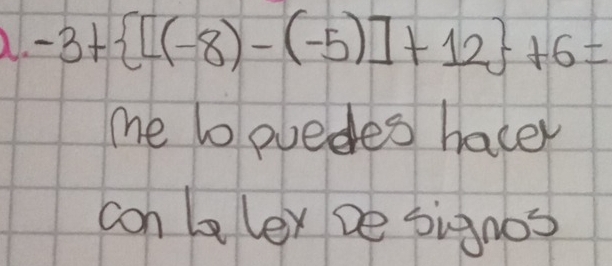 2. -3+{[(-8)-(-5)]+12}+6=
me lo puedes hacer
con la ley de signos